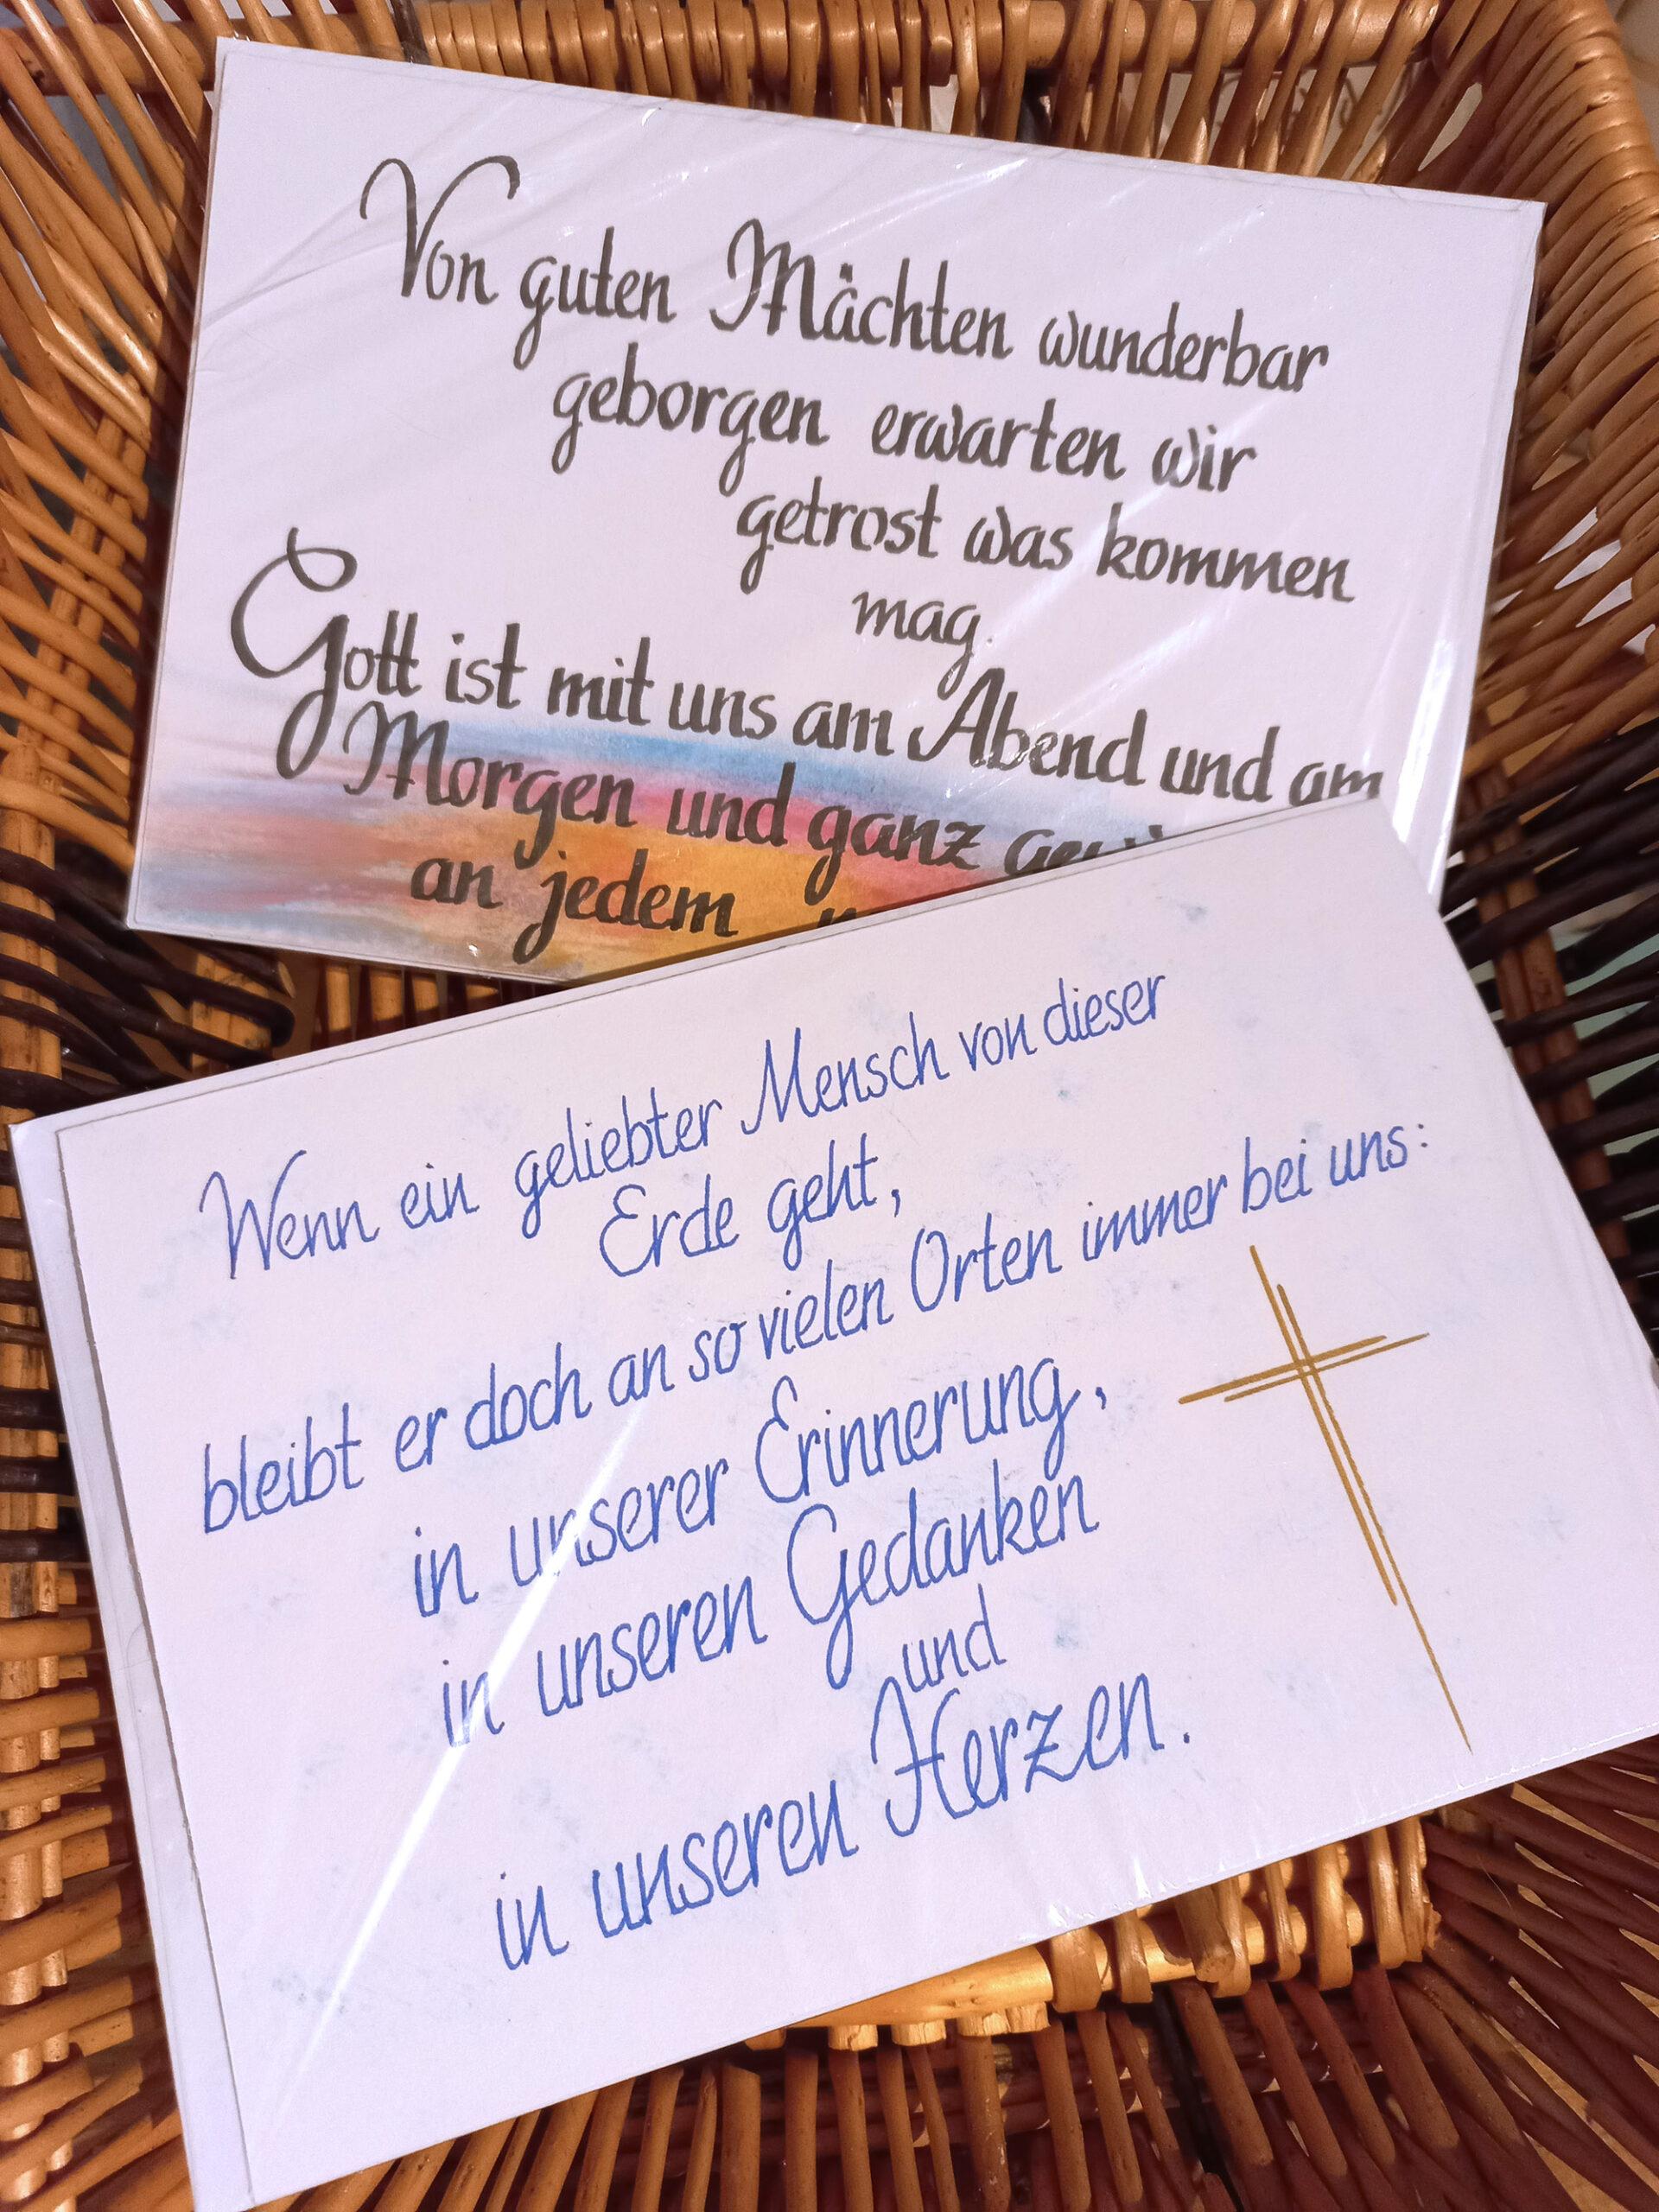 Von guten Mächten wunderbar
geborgen erwarten wir
getrost was kommen
mag.
Gott ist mit uns am Abend und am
Morgen und ganz
an jedem
Wenn ein geliebter Mensch von dieser
Erde geht,
bleibt er doch an so vielen Orten immer bei uns:
in unserer Erinnerung,
in unseren Gedanken
und
in unseren Herzen.